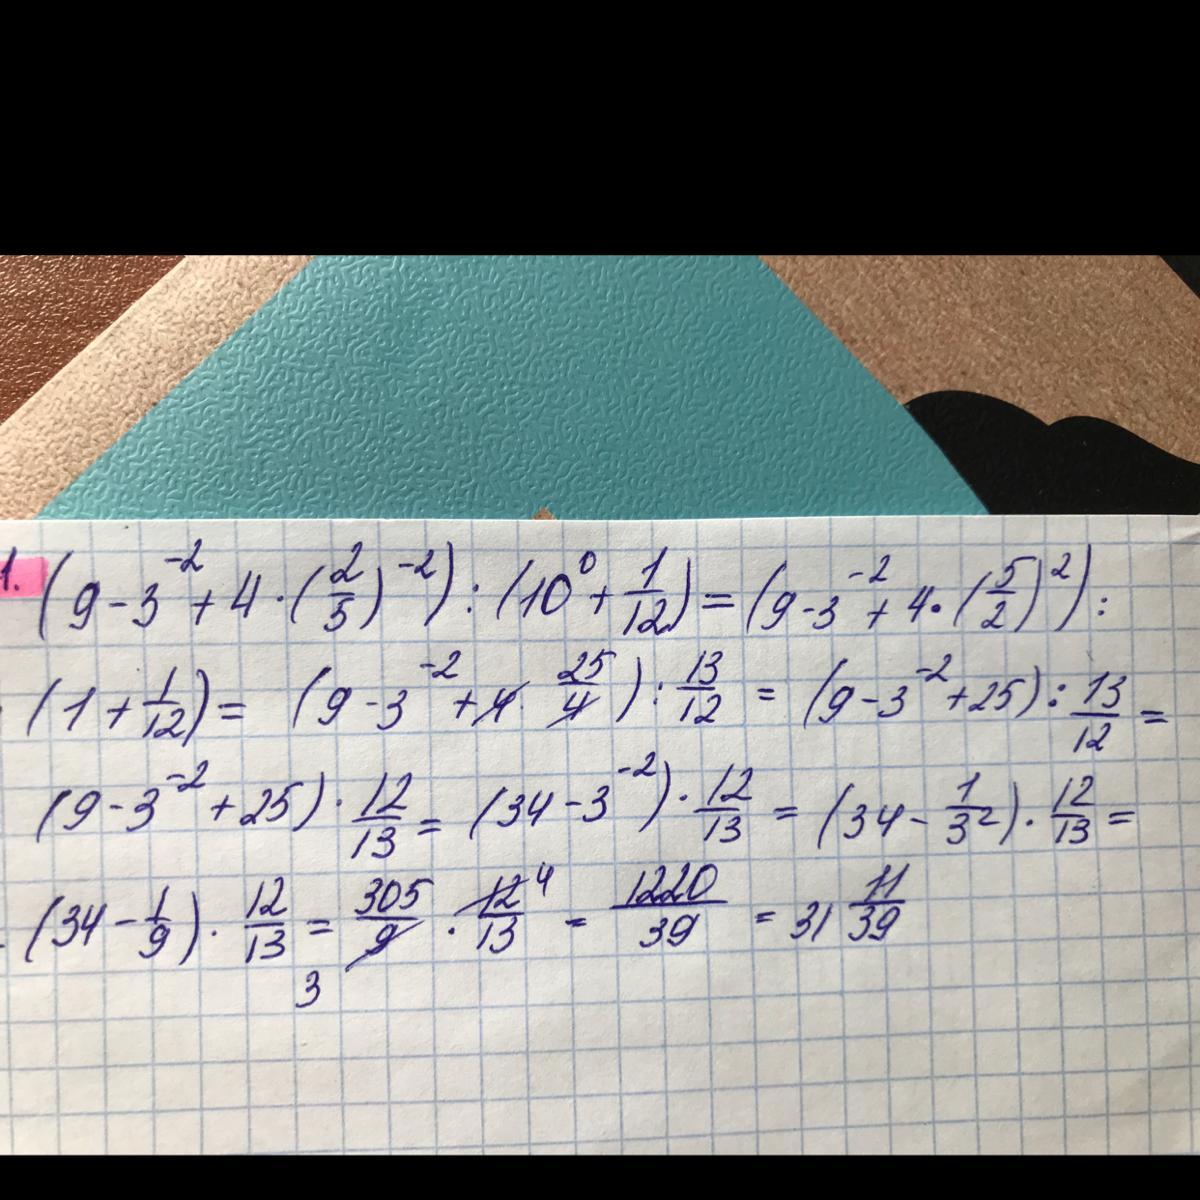 1. (9 - 3⁻² + 4 · (2/5)⁻²) : (10⁰ + 1/12) = (9 - 3⁻² + 4 · (5/2)²) :
: (1 + 1/12) = (9 - 3⁻² + 4 · 25/4) : 13/12 = (9 - 3⁻² + 25) : 13/12 =
(9 - 3⁻² + 25) · 12/13 = (34 - 3⁻²) · 12/13 = (34 - 1/3²) · 12/13 =
= (34 - 1/9) · 12/13 = 305/9 · 12/13 4 = 1220/39 = 31 11/39
3